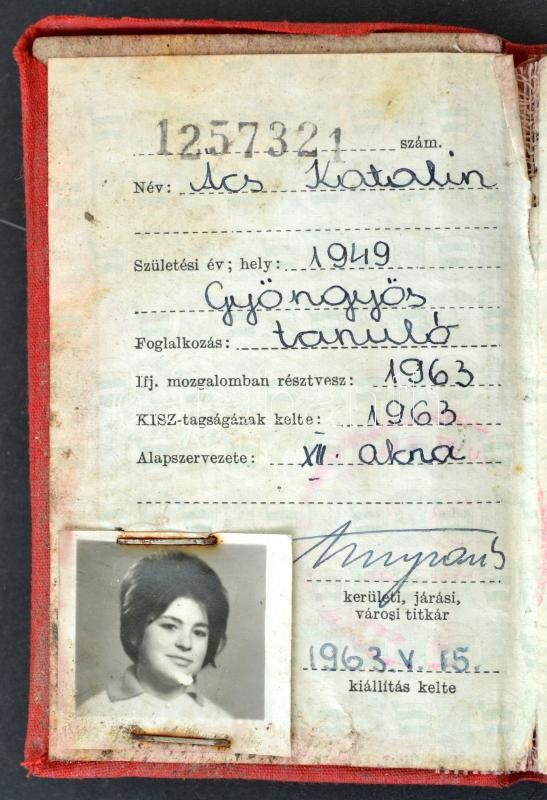 1257321 szám.
Név: Ács Katalin
Születési év; hely: 1949
Gyöngyös
Foglalkozás: tanuló
Ifj. mozgalomban résztvesz: 1963
KISZ-tagságának kelte: 1963
Alapszervezete: XII. akna
kerületi, járási,
városi titkár
1963 V. 15.
kiállítás kelte